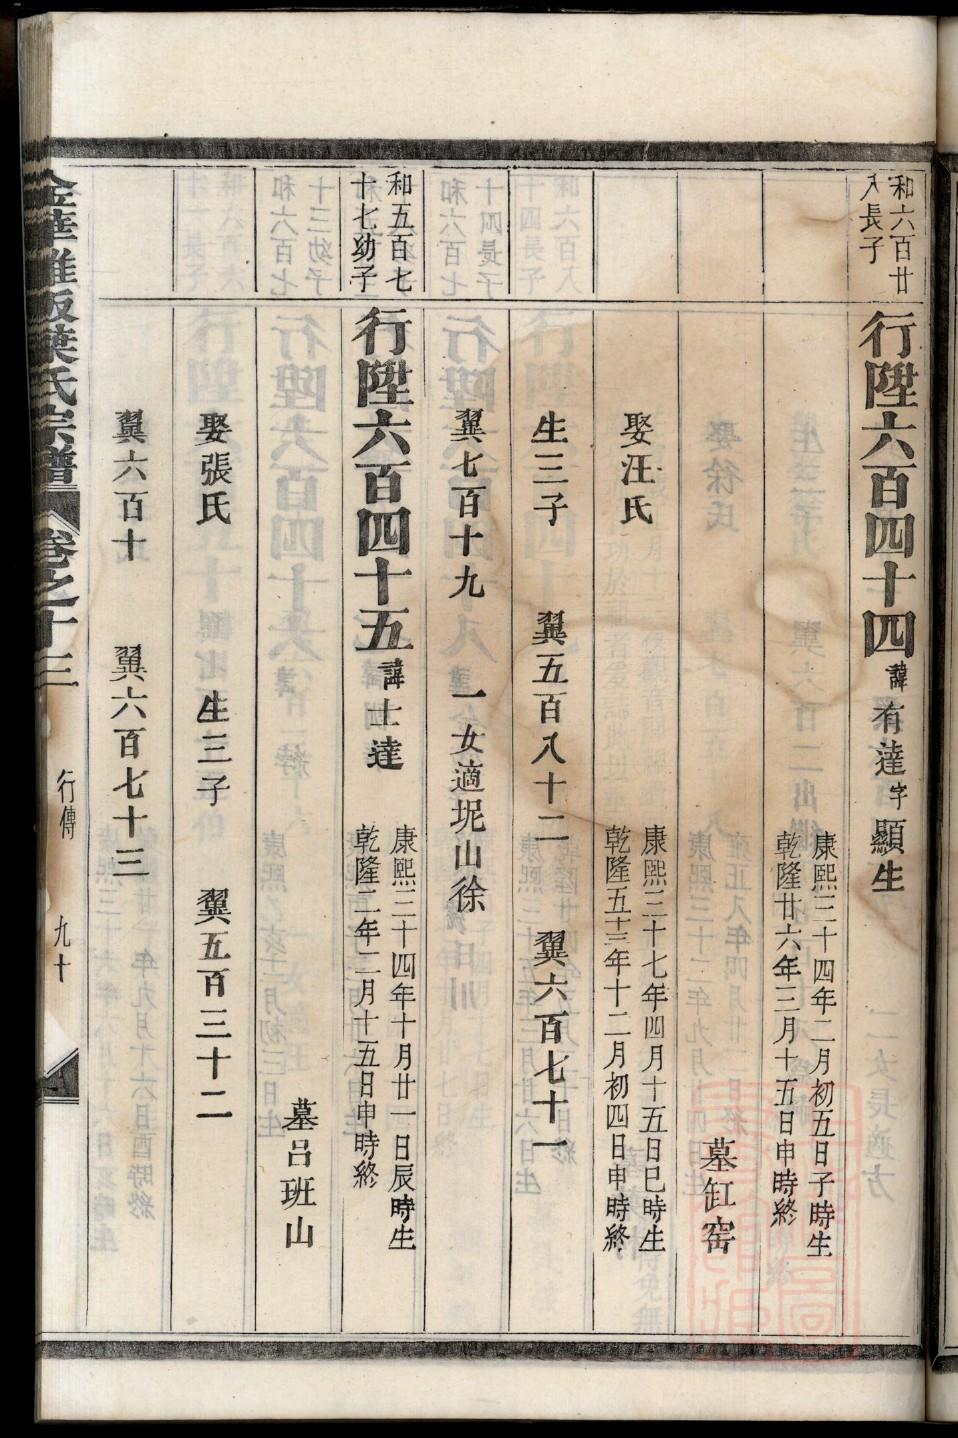 和六百廿
八長子
行陞六百四十四諱有達字顯生
康熙三十四年二月初五日子時生
乾隆廿六年三月十五日申時終
墓缸窑
娶汪氏
康熙三十七年四月十五日巳時生
乾隆五十三年十二月初四日申時終
生三子 翼五百八十二 翼六百七十一
翼七百十九 一女適坭山徐
和五百七
十七幼子
行陞六百四十五諱士達
康熙三十四年十月廿一日辰時生
乾隆二年二月十五日申時終
墓呂班山
娶張氏 生三子 翼五百三十二
翼六百十 翼六百七十三
金華雅畈葉氏宗譜 卷之十三 行傳 九十